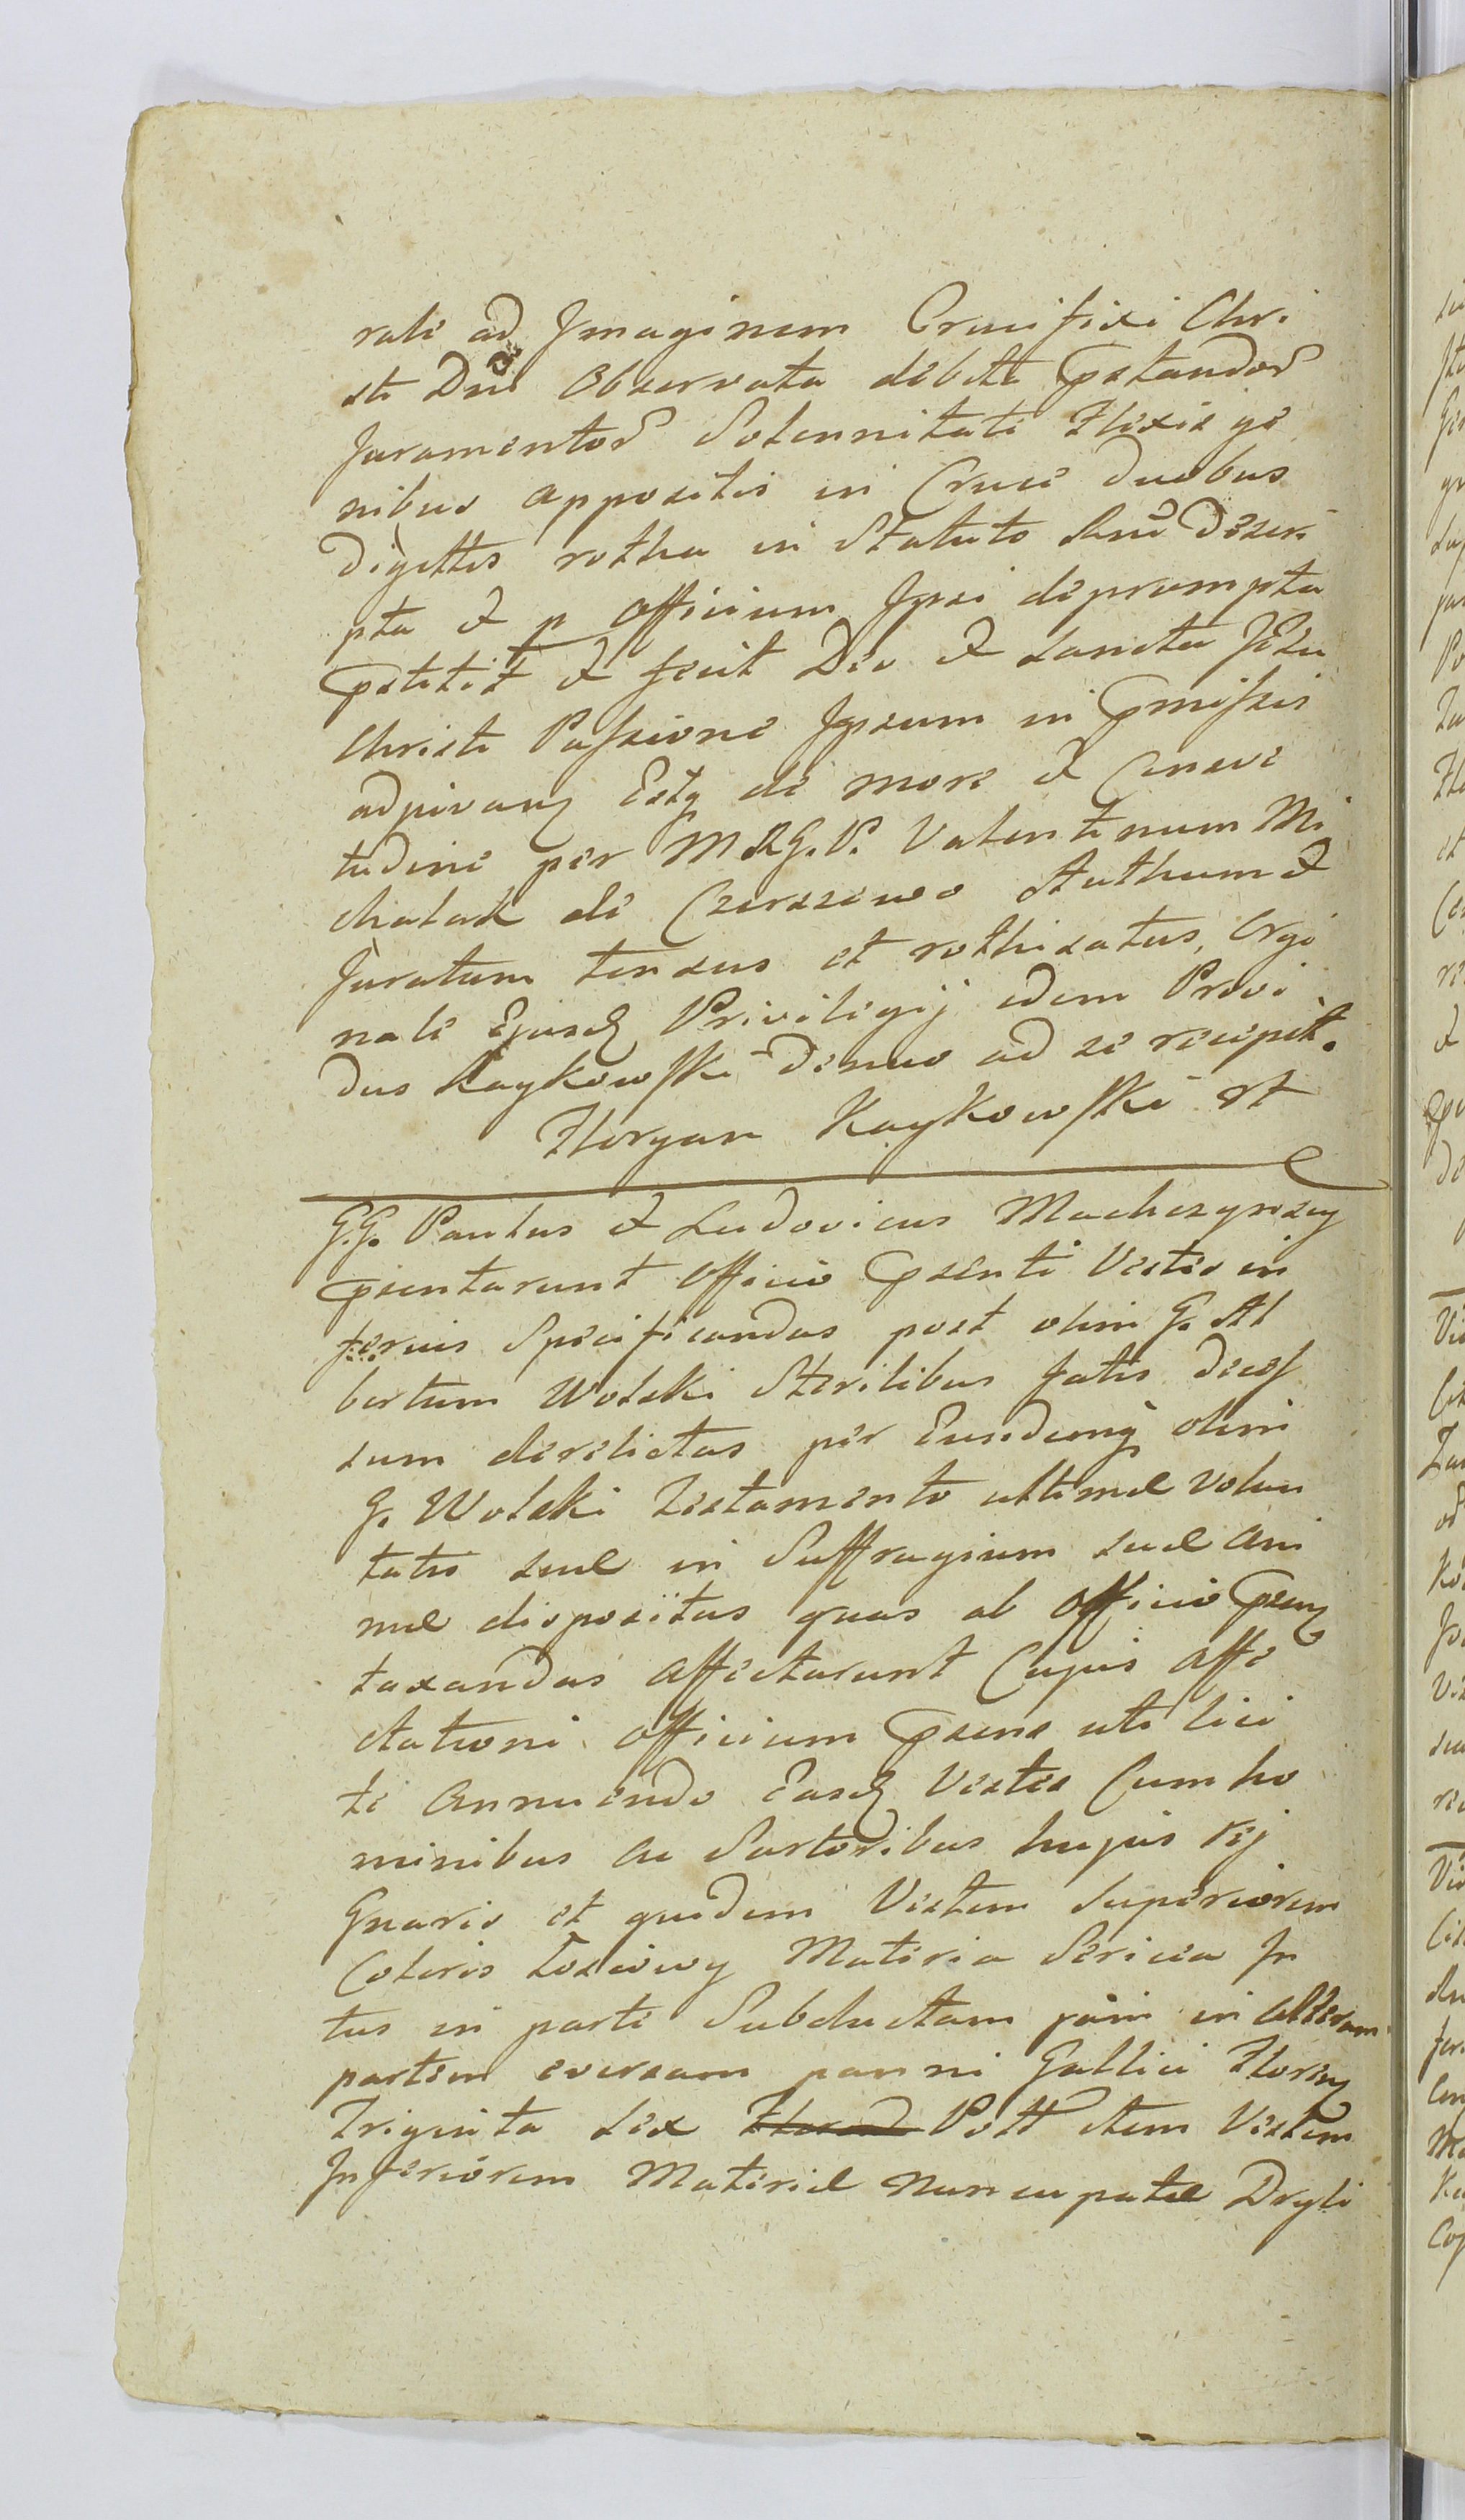 rali ad Imaginem Crucifixi Chri
sti Dni Observata debita pstandor
Juramentor Solennitate Flexis ge
nibus appositis in Cruce duobus
Digittis rotha in Statuto descri
pta et p Officium Ipsi deprompta
pstitit et sicut Deo et sancta Jesu
Christi Passione Ipsum in pmissis
adjuvanq Estq de more et Consve
tudine per M R G. P. Valentinum Mi
chalak de Czerszewo Authum et
Juratum tensus et rothisatus, Orgi
nale Ejusd Privilegij idem Provi
dus Kaykowski denuo ad se recepit.
Floryan Kaykowski
G.G. Paulus et Ludovicus Machczynscy
psentarunt Officio psenti Vestes in
ferius Specificandas post olim G. Al
bertum Wolski Sterilibus fatis deces
sum derelictas per Eundemq olim
G. Wolski Testamento ultimae volun
tatis suae in Suffragium suae Ani
mae dispositas quas ab Officio psenq
taxandas affectarunt Cujus affe
ctationi Officium psens uti lici
te Annuendo Easd Vestes Cum ho
minibus ac Sartoribus hujus rej
Gnaris et quidem Vestem Superiorem
Coloris Materia Sericea In
tus in parte Subductam jam in alteram
partem eversam panni Gallici Florenq
Triginta sex Poll item Vestem
Inferiorem Materiae nuncupatae Dryli